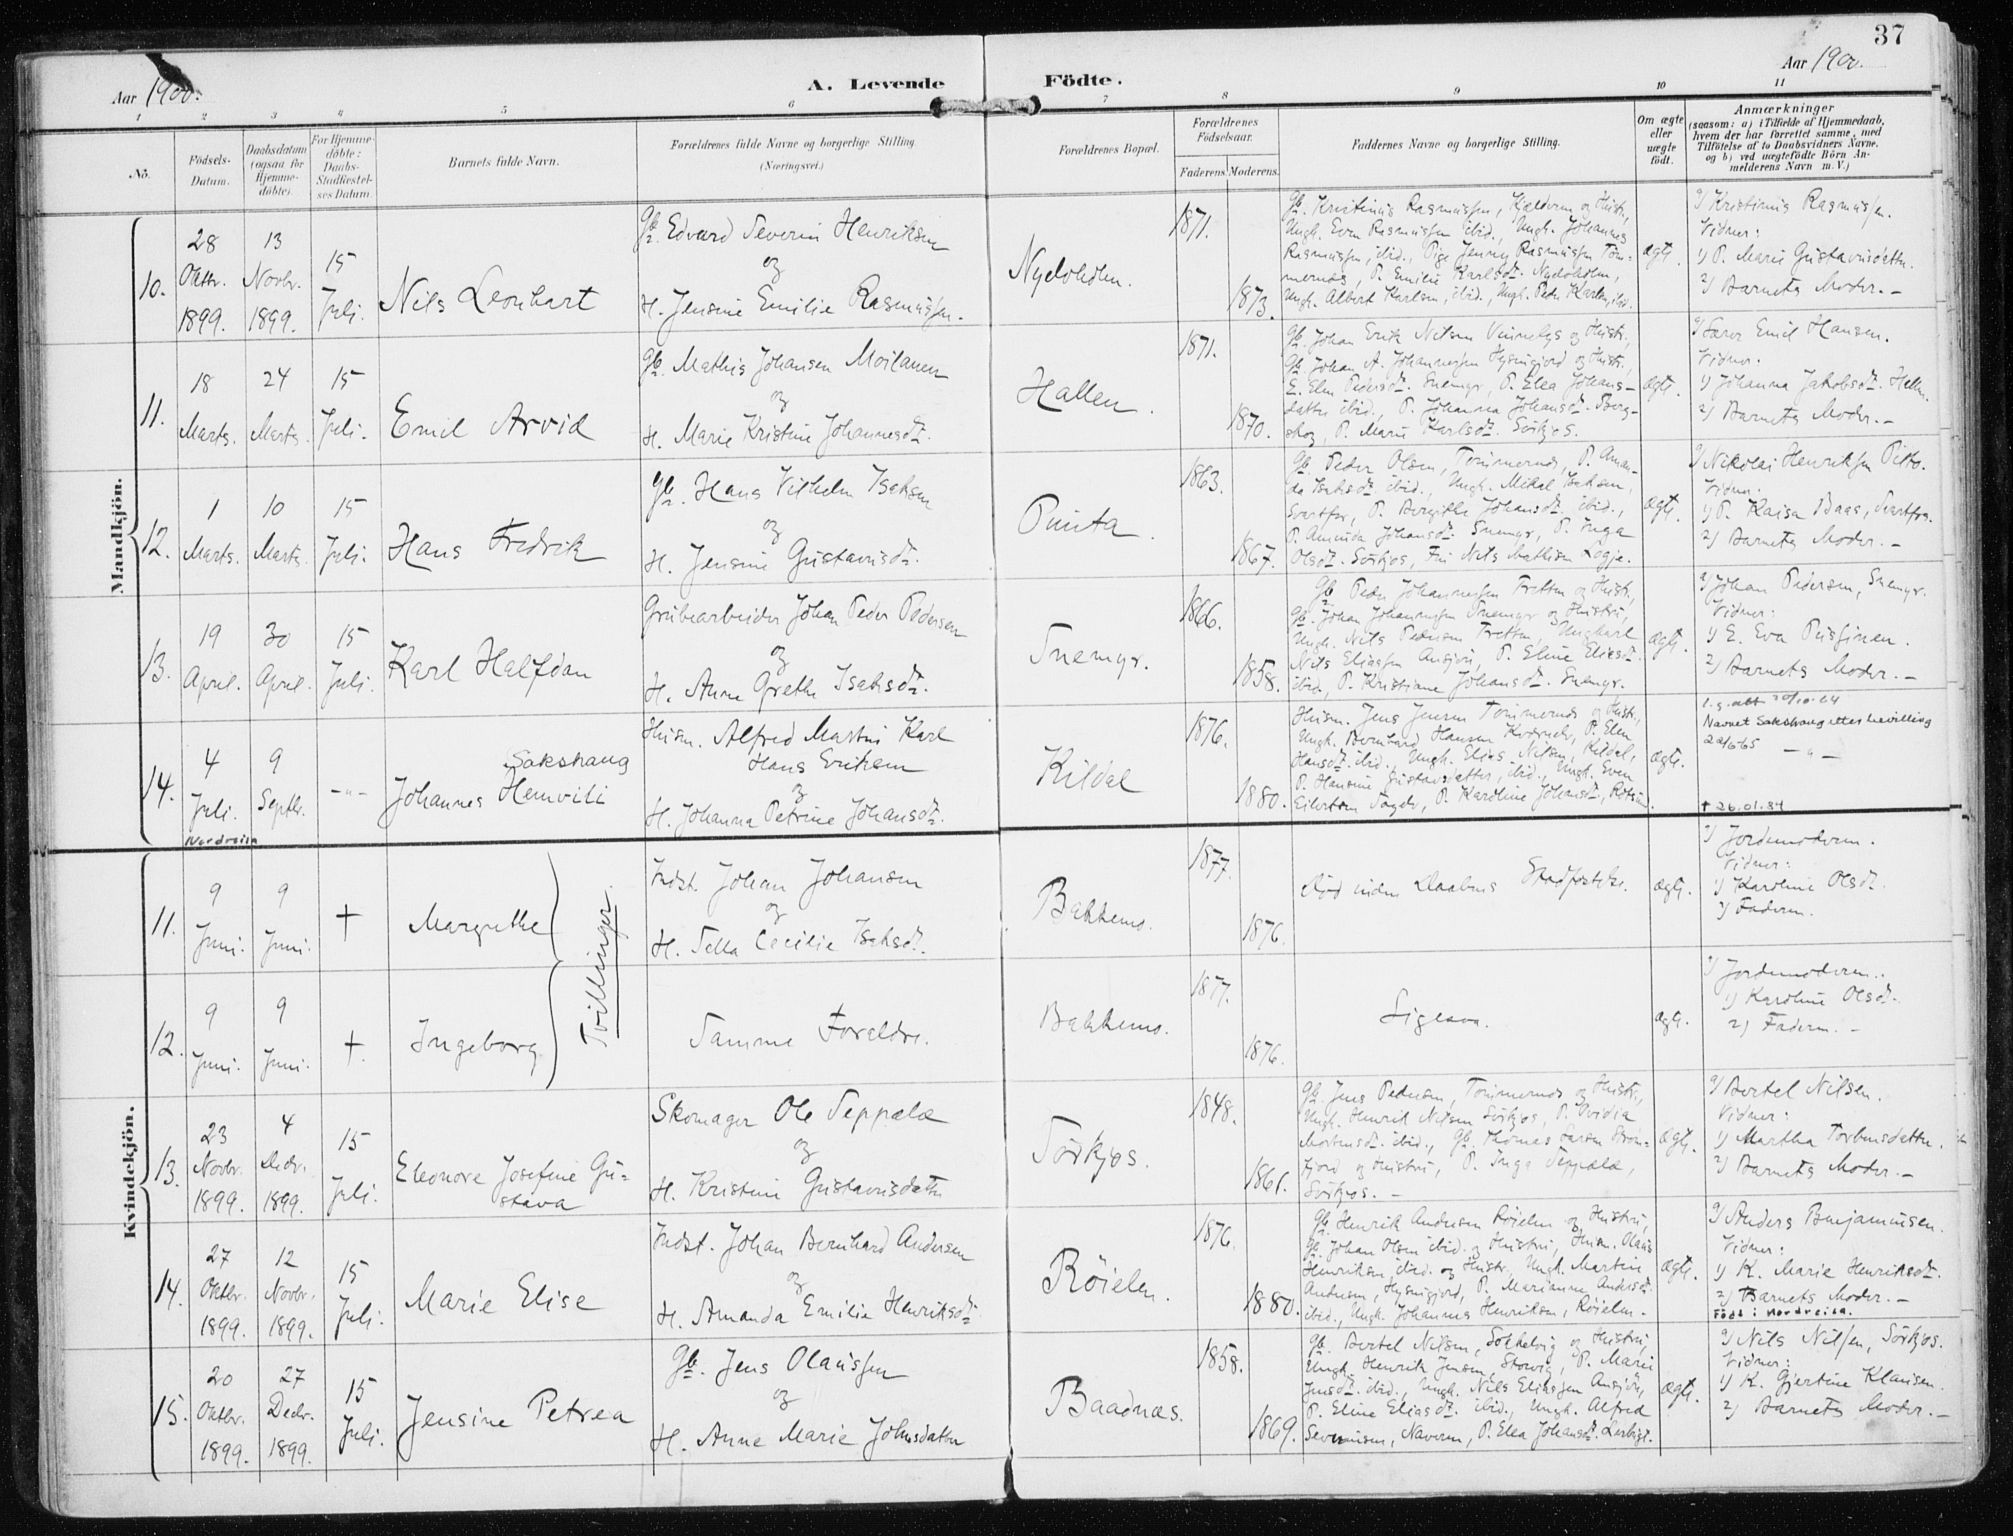 37
Aar 1900.
A. Levende Födte.
Aar 1900.
1 2 3 4 5 6 7 8 9 10 11
No.
Födsels-Datum.
Daabsdatum (ogsaa for Hjemme-döbte).
For Hjemme-döbte: Daabs-Stadfestel-ses Datum.
Barnets fulde Navn.
Forældrenes fulde Navne og borgerlige Stilling
(Næringsvei.)
Forældrenes Bopæl.
Forældrenes Födselsaar.
Faderens. Moderens.
Faddernes Navne og borgerlige Stilling.
Om ægte eller uægte födt.
Anmærkninger
(saasom: a) i Tilfælde af Hjemmedaab,
hvem der har forrettet samme, med
Tilföielse af to Daabsvidners Navne,
og b) ved uægtefödte Börn An-
melderens Navn m. V.)
Mandkjön.
10.
28 Oktbr. 1899.
13 Novbr. 1899.
15 Juli.
Nils Leonhart
Gb. Edvard Severin Henriksen
og
H. Jensine Emilie Rasmussen.
Nyelvholm.
1871.
1873.
Gb. Kristinus Rasmussen, Kjelderen og Hustr.,
Ungk. Even Rasmussen ibid., Ungk. Johannes
Rasmussen, ibid., Pige Jenny Rasmussen Tøm-
mernes, P. Emilie Karlsdtr. Nyelvholm,
Ungk. Albert Karlsen, ibid., Ungk. Peder Karlsen, ibid.
ægte.
a) Kristinus Rasmussen.
Vidner:
1) P. Marie Gustavusdatter.
2) Barnets Moder. -
11.
18 Marts.
24 Marts.
15 Juli.
Emil Arvid
Gb. Mathis Johansen Moilanen
og
H. Marie Kristine Johannesdtr.
Hallen.
1871.
1870.
Gb. Johan Erik Nilsen Vinnelys og Hustr.,
Gb. Johan A. Johannessen Hysingjord og Hustr.,
E. Elen Pedersdtr. Snemyr, P. Elea Johans-
datter ibid., P. Johanna Johansdtr. Berg-
skog, P. Marie Karlsdtr. Sörkjos.
ægt.
a) Lærer Emil Hansen.
Vidner.
1) Johanna Jakobsdtr. Hallen.
2) Barnets Moder. -
12.
1 Marts.
10 Marts.
15 Juli.
Hans Fredrik
Gb. Hans Vilhelm Isaksen
og
H. Jensine Gustavusdtr.
Punta.
1863.
1867.
Gb. Peder Olsen, Tömmernes, P. Aman-
da Isaksdtr ibid., Ungk. Mikal Isaksen,
Svartfos, P. Bergithe Johansdtr. ibid.,
P. Aminda Johansdtr. Snemyr, P. Inga
Olsdtr. Sörkjos, Fin Nils Mathisen Loppe.
ægte.
a) Nikolai Henriksen Pitto.
Vidner.
1) P. Kaisa Baas, Svartfos.
2) Barnets Moder. -
13.
19 April.
30 April.
15 Juli.
Karl Halfdan
Grubearbeider Johan Peder Pedersen
og
H. Anne Grethe Isaksdtr.
Snemyr.
1866.
1858.
Gb. Peder Johannessen Fretten og Hustr.,
Gb. Johan Johannessen Snemyr og Hustru,
Ungk. Nils Pedersen Fretten, Ungkarl
Nils Eliassen Ansjön, P. Eline Eliasdtr.
ibid., P. Kristiane Johansdtr. Snemyr.
ægte.
a) Johan Pedersen, Snemyr.
Vidner:
1) E. Eva Pussinen.
2) Barnets Moder. -
14.
4 Juli.
Nordreisa
9 Septbr.
- " -
Sakshaug
Johannes Hemvili
Husm. Alfred Martin Karl
Hans Eriksen
og
H. Johanna Petrine Johansdtr.
Kildal
1876.
1880.
Husm. Jens Jensen Tömmernes og Hustr.,
Ungk. Bernhard Hansen, P. Elen
Hansdtr. ibid., Ungk. Elias Nilsen, Kildal,
P. Hansine Gustavsdatter, ibid., Ungk. Even
Eilertsen, P. Karoline Johansdtr, Rotsund.
ægte.
l.s. att 20/10-64
Navnet Sakshaug etter bevilling
22/6 65 - " -
† 26.01.84
Kvindekjön.
11.
9 Juni.
9 Juni.
†
Margrethe
Tvillinger.
Indst. Johan Johansen
og
H. Sella Cecilie Isaksdtr.
Bakkemo.
1877.
1876.
Död inden Daabens Stadfestelse.
ægte.
a) Jordemoderen.
Vidner:
1) Karoline Olsdtr.
2) Faderen.
12.
9 Juni.
9 Juni.
†.
Ingeborg
Samme Forældre.
Bakkemo.
1877.
1876.
Ligesaa.
ægte.
a) Jordemoderen.
1) Karoline Olsdtr.
2) Faderen. -
13.
23 Novbr. 1899.
4 Decbr. 1899.
15 Juli.
Eleonore Josefine Gu-
stava
Skomager Ole Seppælæ
og
H. Kristine Gustavusdatter
Sörkjos.
1848.
1861.
Gb. Jens Pedersen, Tömmernes og Hustr.,
Ungk. Henrik Nilsen Sörkjos, P. Ovidia
Mortensdtr. ibid., Gb. Thomas Larsen Ström-
fjord og Hustru, P. Inga Seppælæ,
Sörkjos. -
ægte.
a) Bertel Nilsen.
Vidner:
1) Martha Torbensdatter.
2) Barnets Moder. -
14.
27 Oktbr. 1899.
12 Novbr. 1899.
15 Juli.
Marie Elise
Indst. Johan Bernhard Andersen
og
H. Amanda Emilie Henriksdtr.
Röielen.
1876.
1880.
Gb. Henrik Andersen Röielen og Hustru,
Gb. Johan Olsen ibid. og Hustru, Husm. Olaus
Henriksen ibid. og Hustr., Ungk. Martin
Andersen, Hysingjord, P. Marianne Andersdtr.
ibid., Ungk. Johannes Henriksen, Röielen.
ægte.
a) Anders Benjaminsen.
Vidner:
1) K. Marie Henriksdtr.
2) Barnets Moder. -
Född i Nordreisa.
15.
20 Oktbr. 1899.
27 Decbr. 1899.
15 Juli.
Jensine Petrea
Gb. Jens Olaussen
og
H. Anne Marie Johnsdatter
Baadnæs.
1858.
1869.
Gb. Bertel Nilsen, Sokkelvig og Hustru,
Ungk. Henrik Jensen, Storvig, P. Marie
Jensdtr. ibid., Ungk. Nils Eliassen Ansjön,
P. Eline Eliasdtr. ibid., Ungk. Alfred
Severinsen, Naveren, P. Elea Johansdtr.
ægte.
a) Nils Nilsen, Sörkjos.
Vidner:
1) K. Gjertine Klausen.
2) Barnets Moder. -